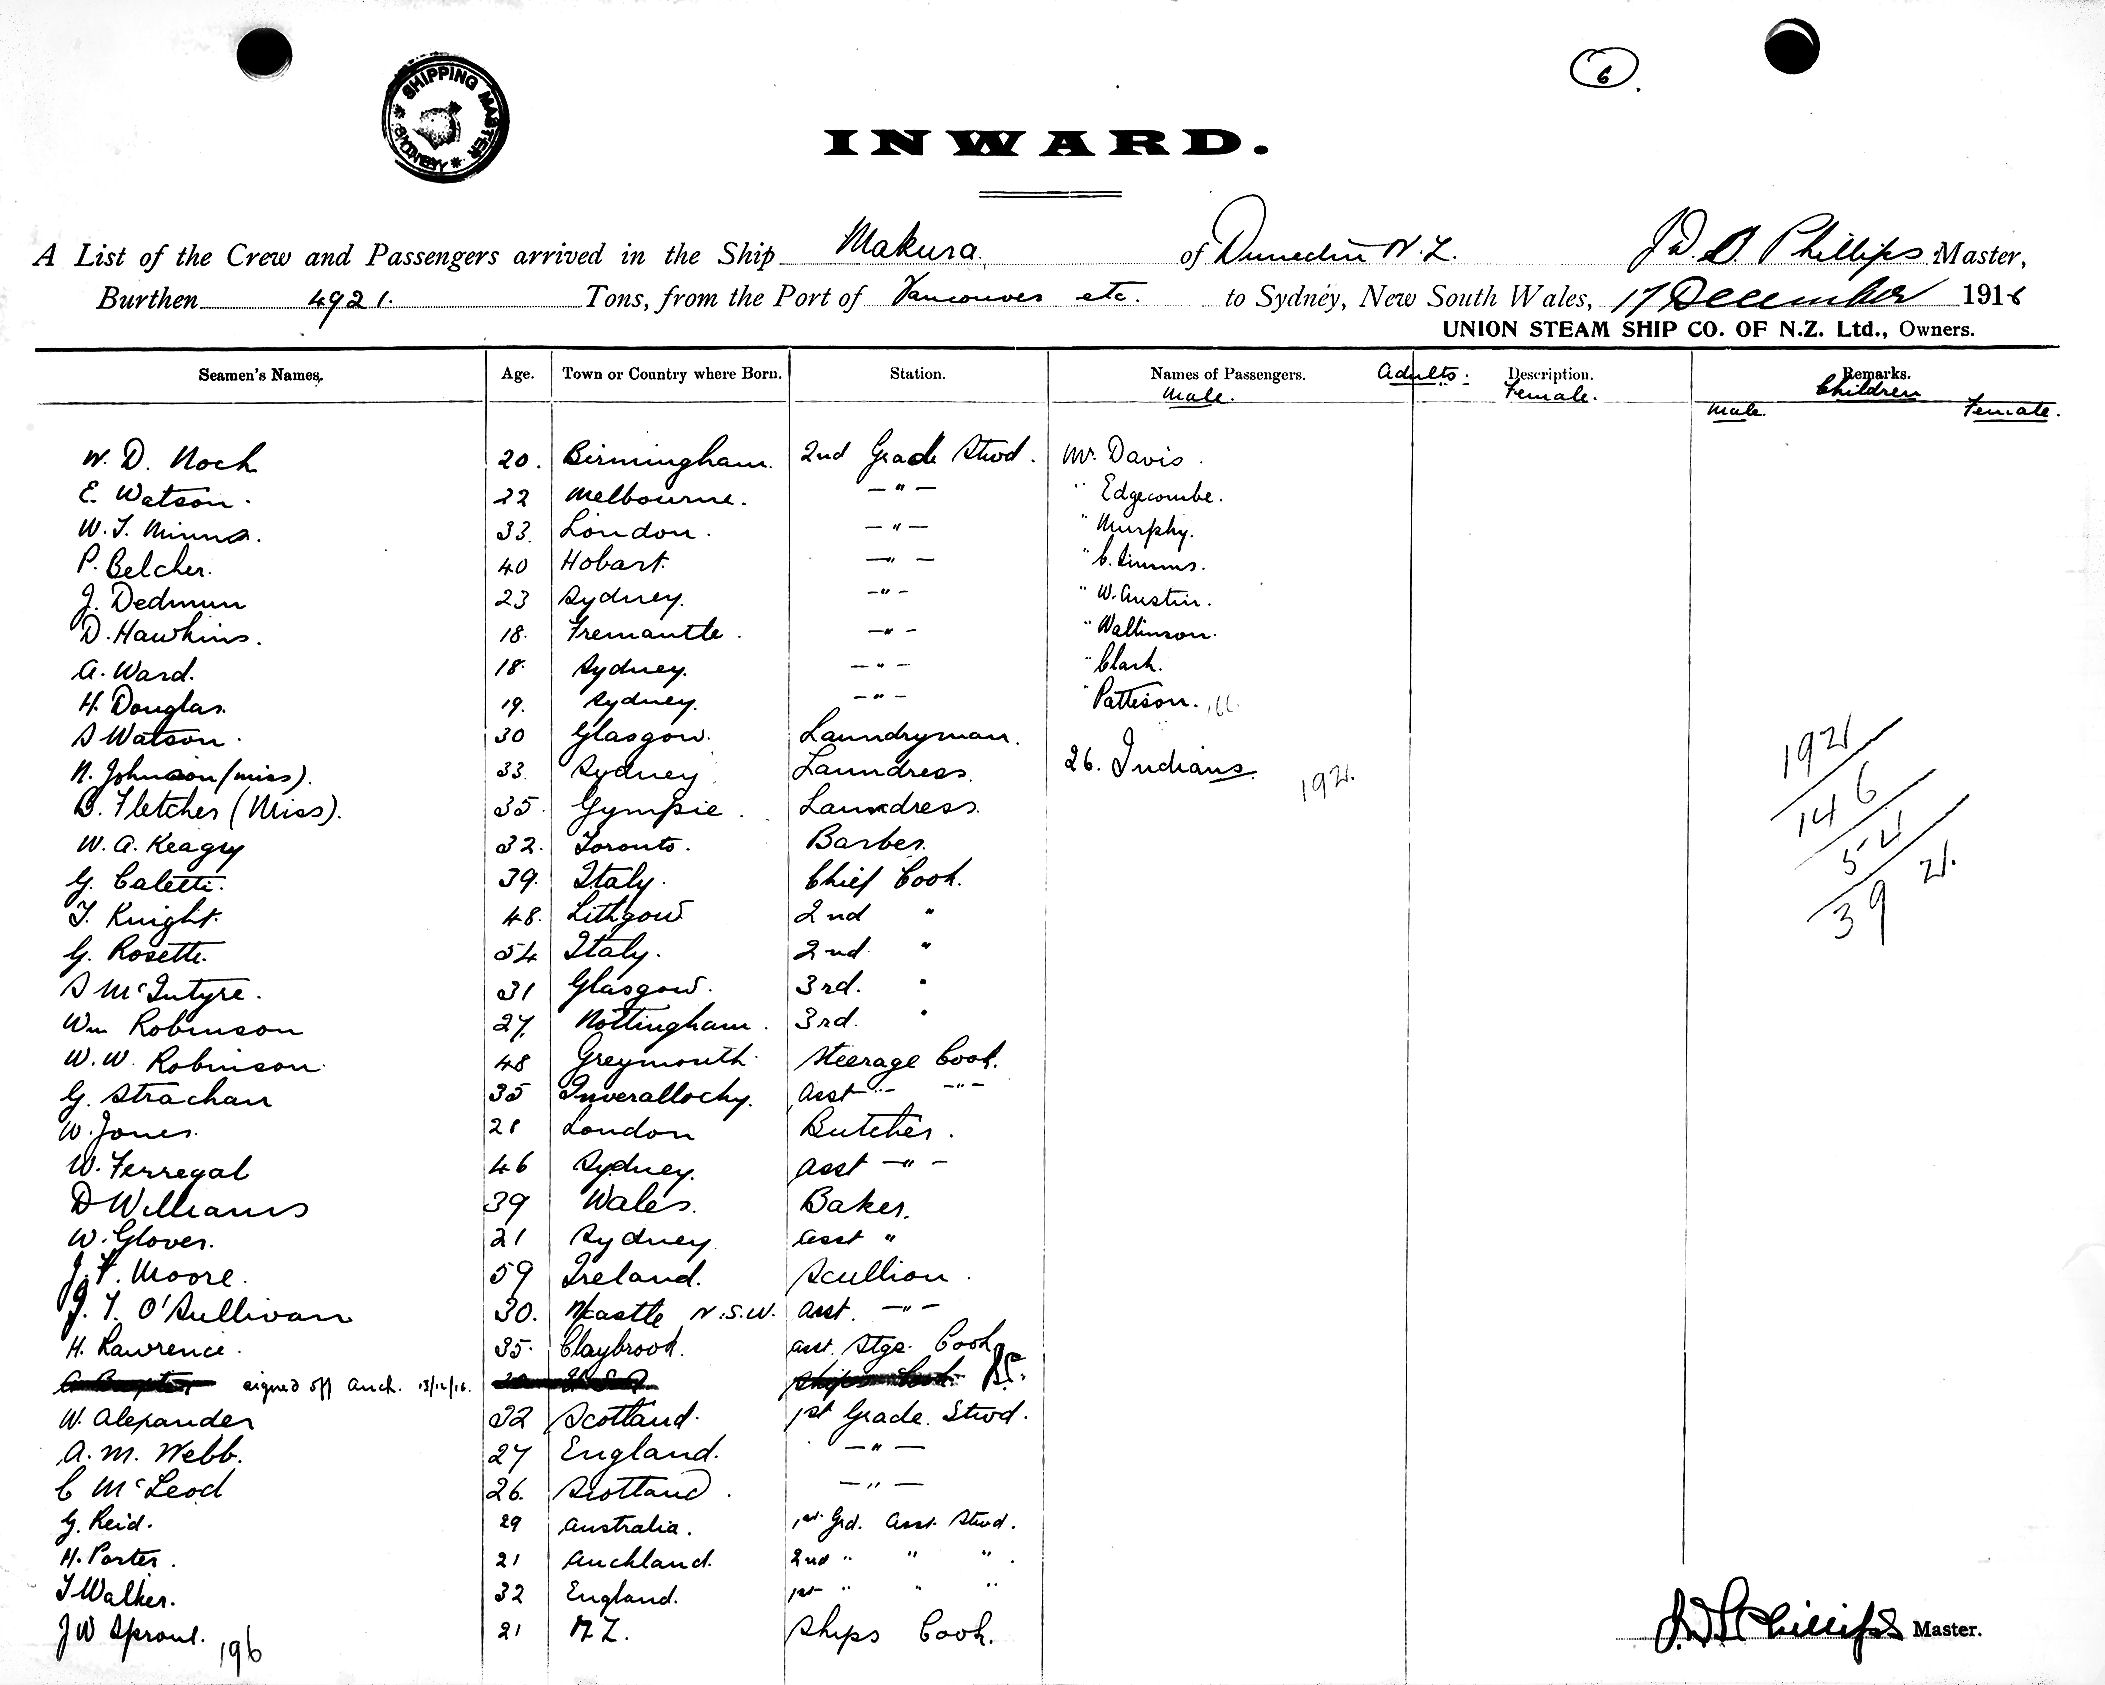 6
SHIPPING MASTER
SYDNEY
INWARD.
A List of the Crew and Passengers arrived in the Ship Makura of Dunedin N.Z. J.D.S. Phillips Master,
Burthen 4921. Tons, from the Port of Vancouver etc. to Sydney, New South Wales, 17 December 1916
UNION STEAM SHIP CO. OF N.Z. Ltd., Owners.
Seamen's Names. Age. Town or Country where Born. Station. Names of Passengers. Adults: Description. Remarks.
Male. Female. Children
Male. Female.
W. D. Noch 20. Birmingham. 2nd Grade Stwd. Mr. Davis.
E. Watson. 22 Melbourne. — " — " Edgecombe.
W. T. 33. London. — " — " Murphy.
P. Belcher. 40 Hobart. — " — " C. Simms.
J. Dedmun 23 Sydney. — " — " W. Austin.
D. Hawkins. 18. Fremantle. — " — " Wallinson.
A. Ward. 18. Sydney. — " — " Clark.
H. Douglas. 19. Sydney. — " — " Pattison.
S Watson. 30 Glasgow. Laundryman.
N. Johnson (miss). 33. Sydney. Laundress. 26. Indians.
B. Fletcher (Miss). 35. Gympie. Laundress.
W. A. Keagry 32. Toronto. Barber.
G. Caletti. 39. Italy. Chief Cook.
T. Knight. 48. Lithgow 2nd "
G. Rosette. 54 Italy. 2nd. "
S McIntyre. 31 Glasgow. 3rd. "
Wm Robinson 27. Nottingham. 3rd. "
W. W. Robinson. 48 Greymouth. Steerage Cook.
G. Strachan 35 Inverallochy. Asst — " — — " —
W. Jones. 28 London Butcher.
W. Ferregal 46 Sydney. Asst — " —
D Williams 39 Wales. Baker.
W. Glover. 21 Sydney Asst "
J. F. Moore. 59 Ireland. Scullion.
J. T. O'Sullivan 30. N/castle N.S.W. Asst. — " —
H. Lawrence. 35. Claybrook. Asst. Stge. Cook
signed off Auck. 13/12/16.
W. Alexander 32 Scotland. 1st Grade. Stwd.
A. M. Webb. 27 England. — " —
C McLeod 26. Scotland. — " —
G. Reid. 29 Australia. 1st Grd. Asst. Stwd.
H. Porter. 21 Auckland. 2nd " " ".
T Walker. 32 England. 1st " " "
J W Sproul. 21 N.Z. Ships Cook.
196
192
146
52
39 2
J.D.S. Phillips Master.